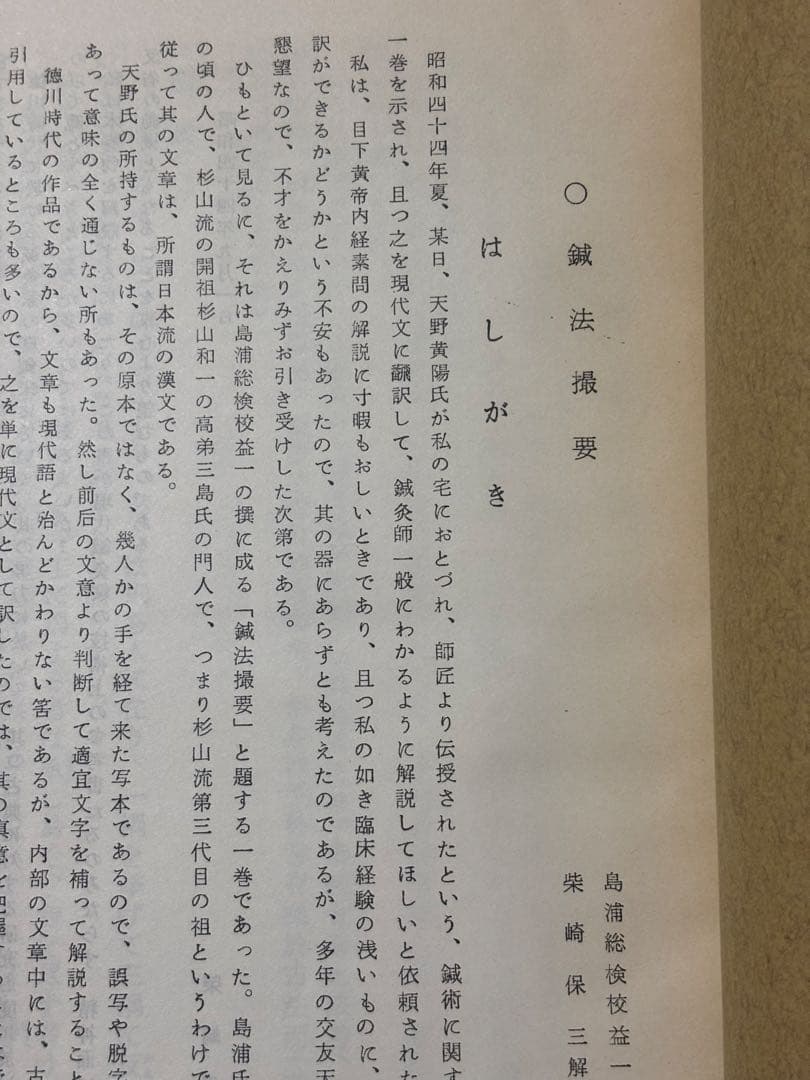 ○鍼法撮要
島浦総検校益一
柴崎保三解
はしがき
昭和四十四年夏、某日、天野黄陽氏が私の宅におとづれ、師匠より伝授されたという、鍼術に関す
一巻を示され、且つ之を現代文に飜訳して、鍼灸師一般にわかるように解説してほしいと依頼された
私は、目下黄帝内経素問の解説に寸暇もおしいときであり、且つ私の如き臨床経験の浅いものに、
訳ができるかどうかという不安もあったので、其の器にあらずとも考えたのであるが、多年の交友天
懇望なので、不才をかえりみずお引き受けした次第である。
ひもといて見るに、それは島浦総検校益一の撰に成る「鍼法撮要」と題する一巻であった。島浦氏
の頃の人で、杉山流の開祖杉山和一の高弟三島氏の門人で、つまり杉山流第三代目の祖というわけで
従って其の文章は、所謂日本流の漢文である。
天野氏の所持するものは、その原本ではなく、幾人かの手を経て来た写本であるので、誤写や脱字
あって意味の全く通じない所もあった。然し前后の文意より判断して適宜文字を補って解説すること
徳川時代の作品であるから、文章も現代語と殆んどかわりない筈であるが、内部の文章中には、古
引用しているところも多いので、之を単に現代文として訳したのでは、其の真意を把握す